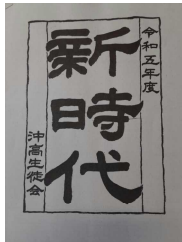 令和五年度
新時代
沖高生徒会